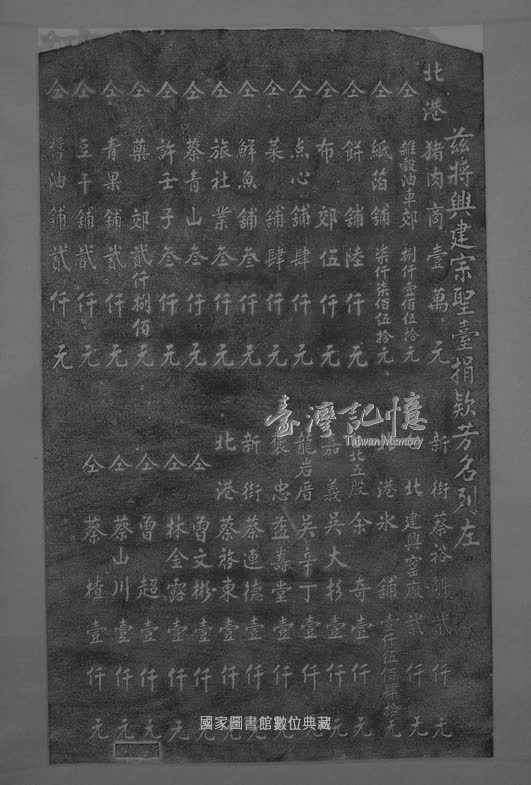 茲將興建宗聖臺捐款芳名列左
北港豬肉商壹萬元
仝雜穀油車郊捌仟壹佰伍拾元
仝紙箔舖柒仟柒佰伍拾元
仝餅舖陸仟元
仝布郊伍仟元
仝点心舖肆仟元
仝菜舖肆仟元
仝鮮魚舖叁仟元
仝旅社業叁仟元
仝蔡青山叁仟元
仝許壬子叁仟元
仝藥郊貳仟捌佰元
仝青果舖貳仟元
仝豆干舖貳仟元
仝醬油舖貳仟元
新街蔡裕斛貳仟元
北建興窑廠貳仟元
港氷舖壹仟伍佰肆拾元
北五殿余奇壹仟元
嘉義吳大杉壹仟元
龍岩厝吳辛丁壹仟元
忠益壽堂壹仟元
新街蔡連德壹仟元
北港蔡啓東壹仟元
仝曾文彬壹仟元
仝林金露壹仟元
仝曾超壹仟元
仝蔡山川壹仟元
仝蔡楂壹仟元
臺灣記憶
Taiwan Memory
國家圖書館數位典藏